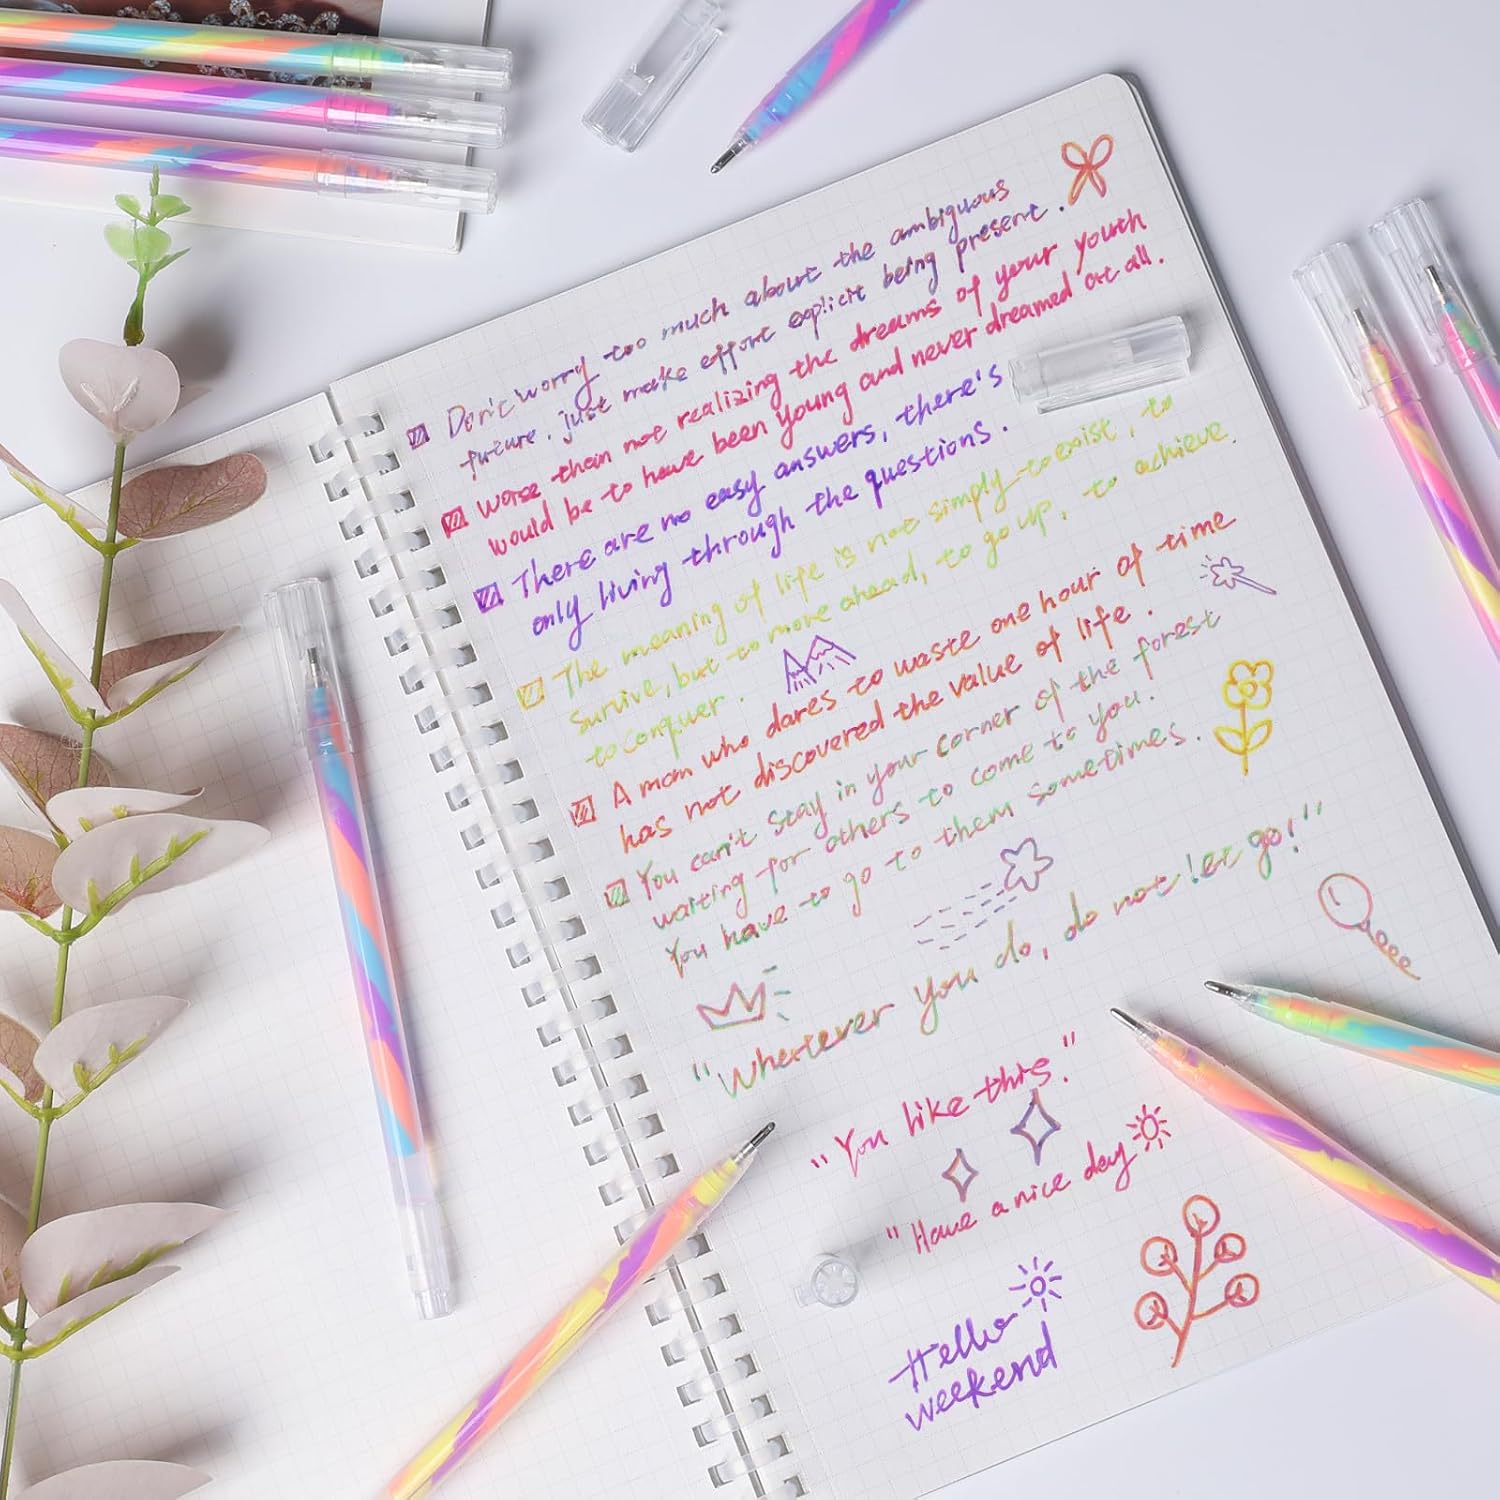 Don't worry too much about the ambiguous
future. just make effort explicit being present.
Worse than not realizing the dreams of your youth
would be to have been young and never dreamed at all.
There are no easy answers, there's
only living through the questions.
The meaning of life is not simply to exist, to
survive, but to move ahead, to go up, to achieve.
to conquer.
A man who dares to waste one hour of time
has not discovered the value of life.
You can't stay in your corner of the forest
waiting for others to come to you.
You have to go to them sometimes.
"Wherever you do, do not let go!"
"You like this."
"Have a nice day
Hello
weekend